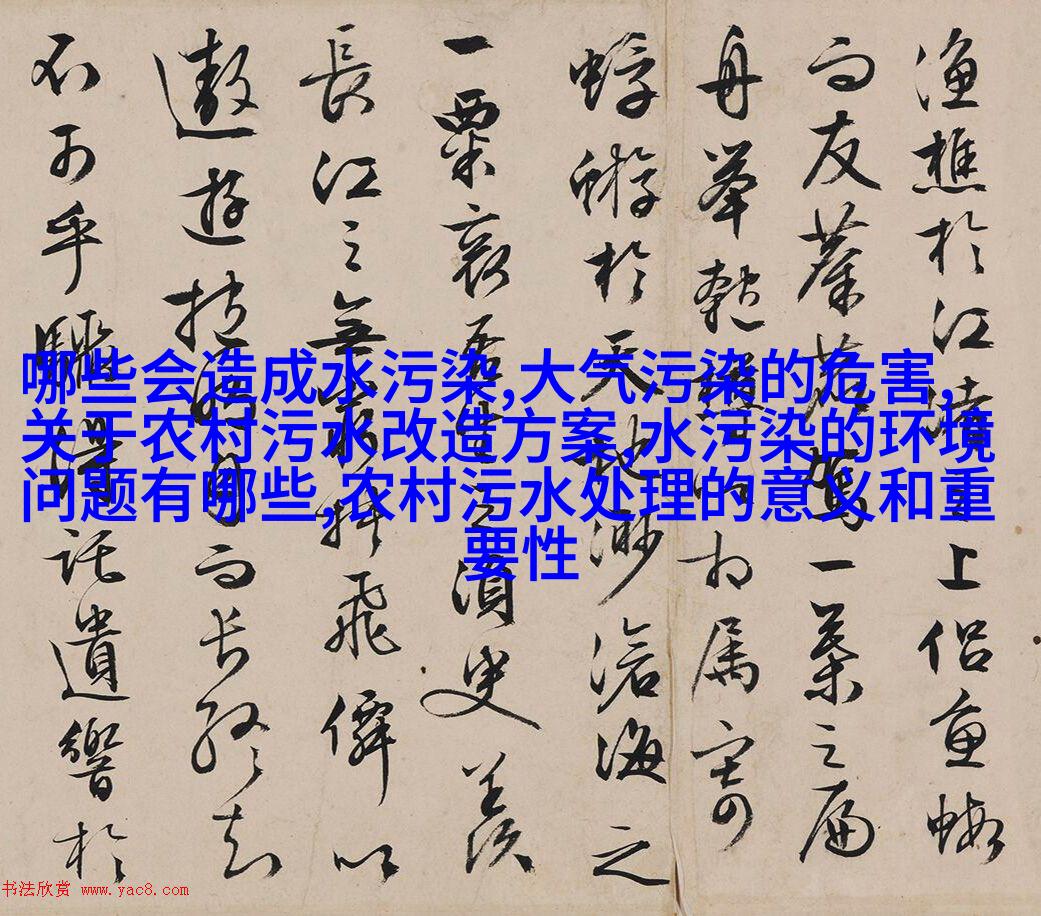 漁樵於江渚之上侶魚蝦
而友麋鹿駕一葉之扁
舟舉匏樽以相屬寄
蜉蝣於天地渺滄海之
一粟哀吾生之須臾羨
長江之無窮挾飛僊以
遨遊抱明月而長終知
不可乎驟得託遺響於
哪些会造成水污染,大气污染的危害,
关于农村污水改造方案,水污染的环境
问题有哪些,农村污水处理的意义和重
要性
书法欣赏 www.yac8.com